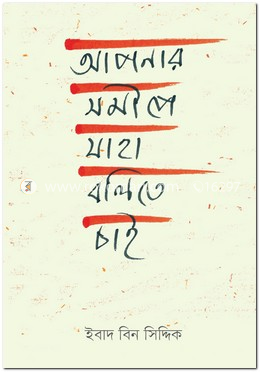 আপনার
সমীপে
যাহা
বলিতে
চাই
ইবাদ বিন সিদ্দিক